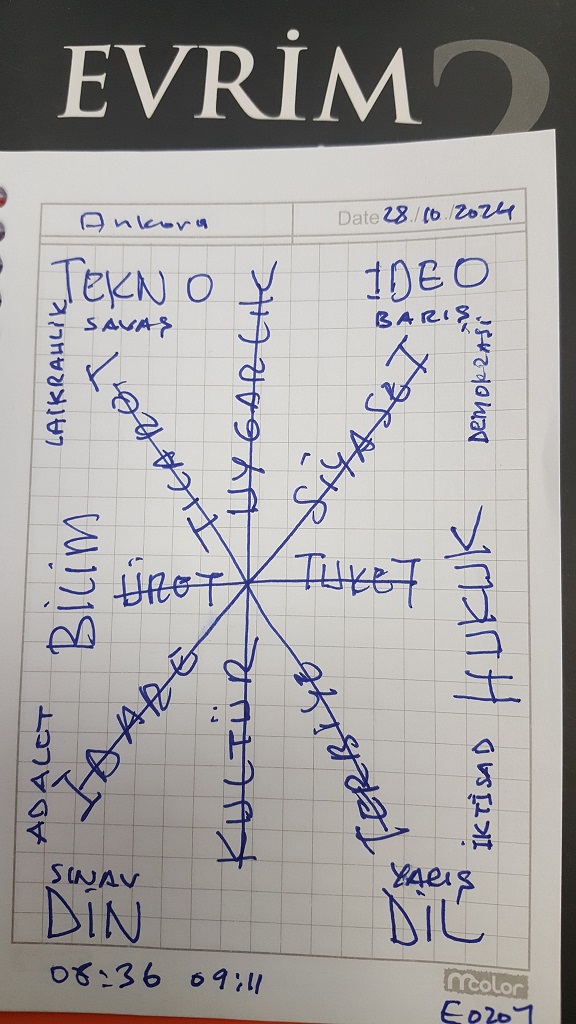 EVRİM 2
Ankara
Date 28/10/2024
TEKNO
IDEO
SAVAŞ
BARIŞ
LAİKRAHLİK
DEMOKRASİ
TİCARET
UYGARLIK
SİYASET
BİLİM
ÜRET
TÜKET
HUKUK
İDARE
KÜLTÜR
TERBİYE
ADALET
İKTİSAD
SINAV
YARIŞ
DİN
DİL
08:36 09:11
mcolor